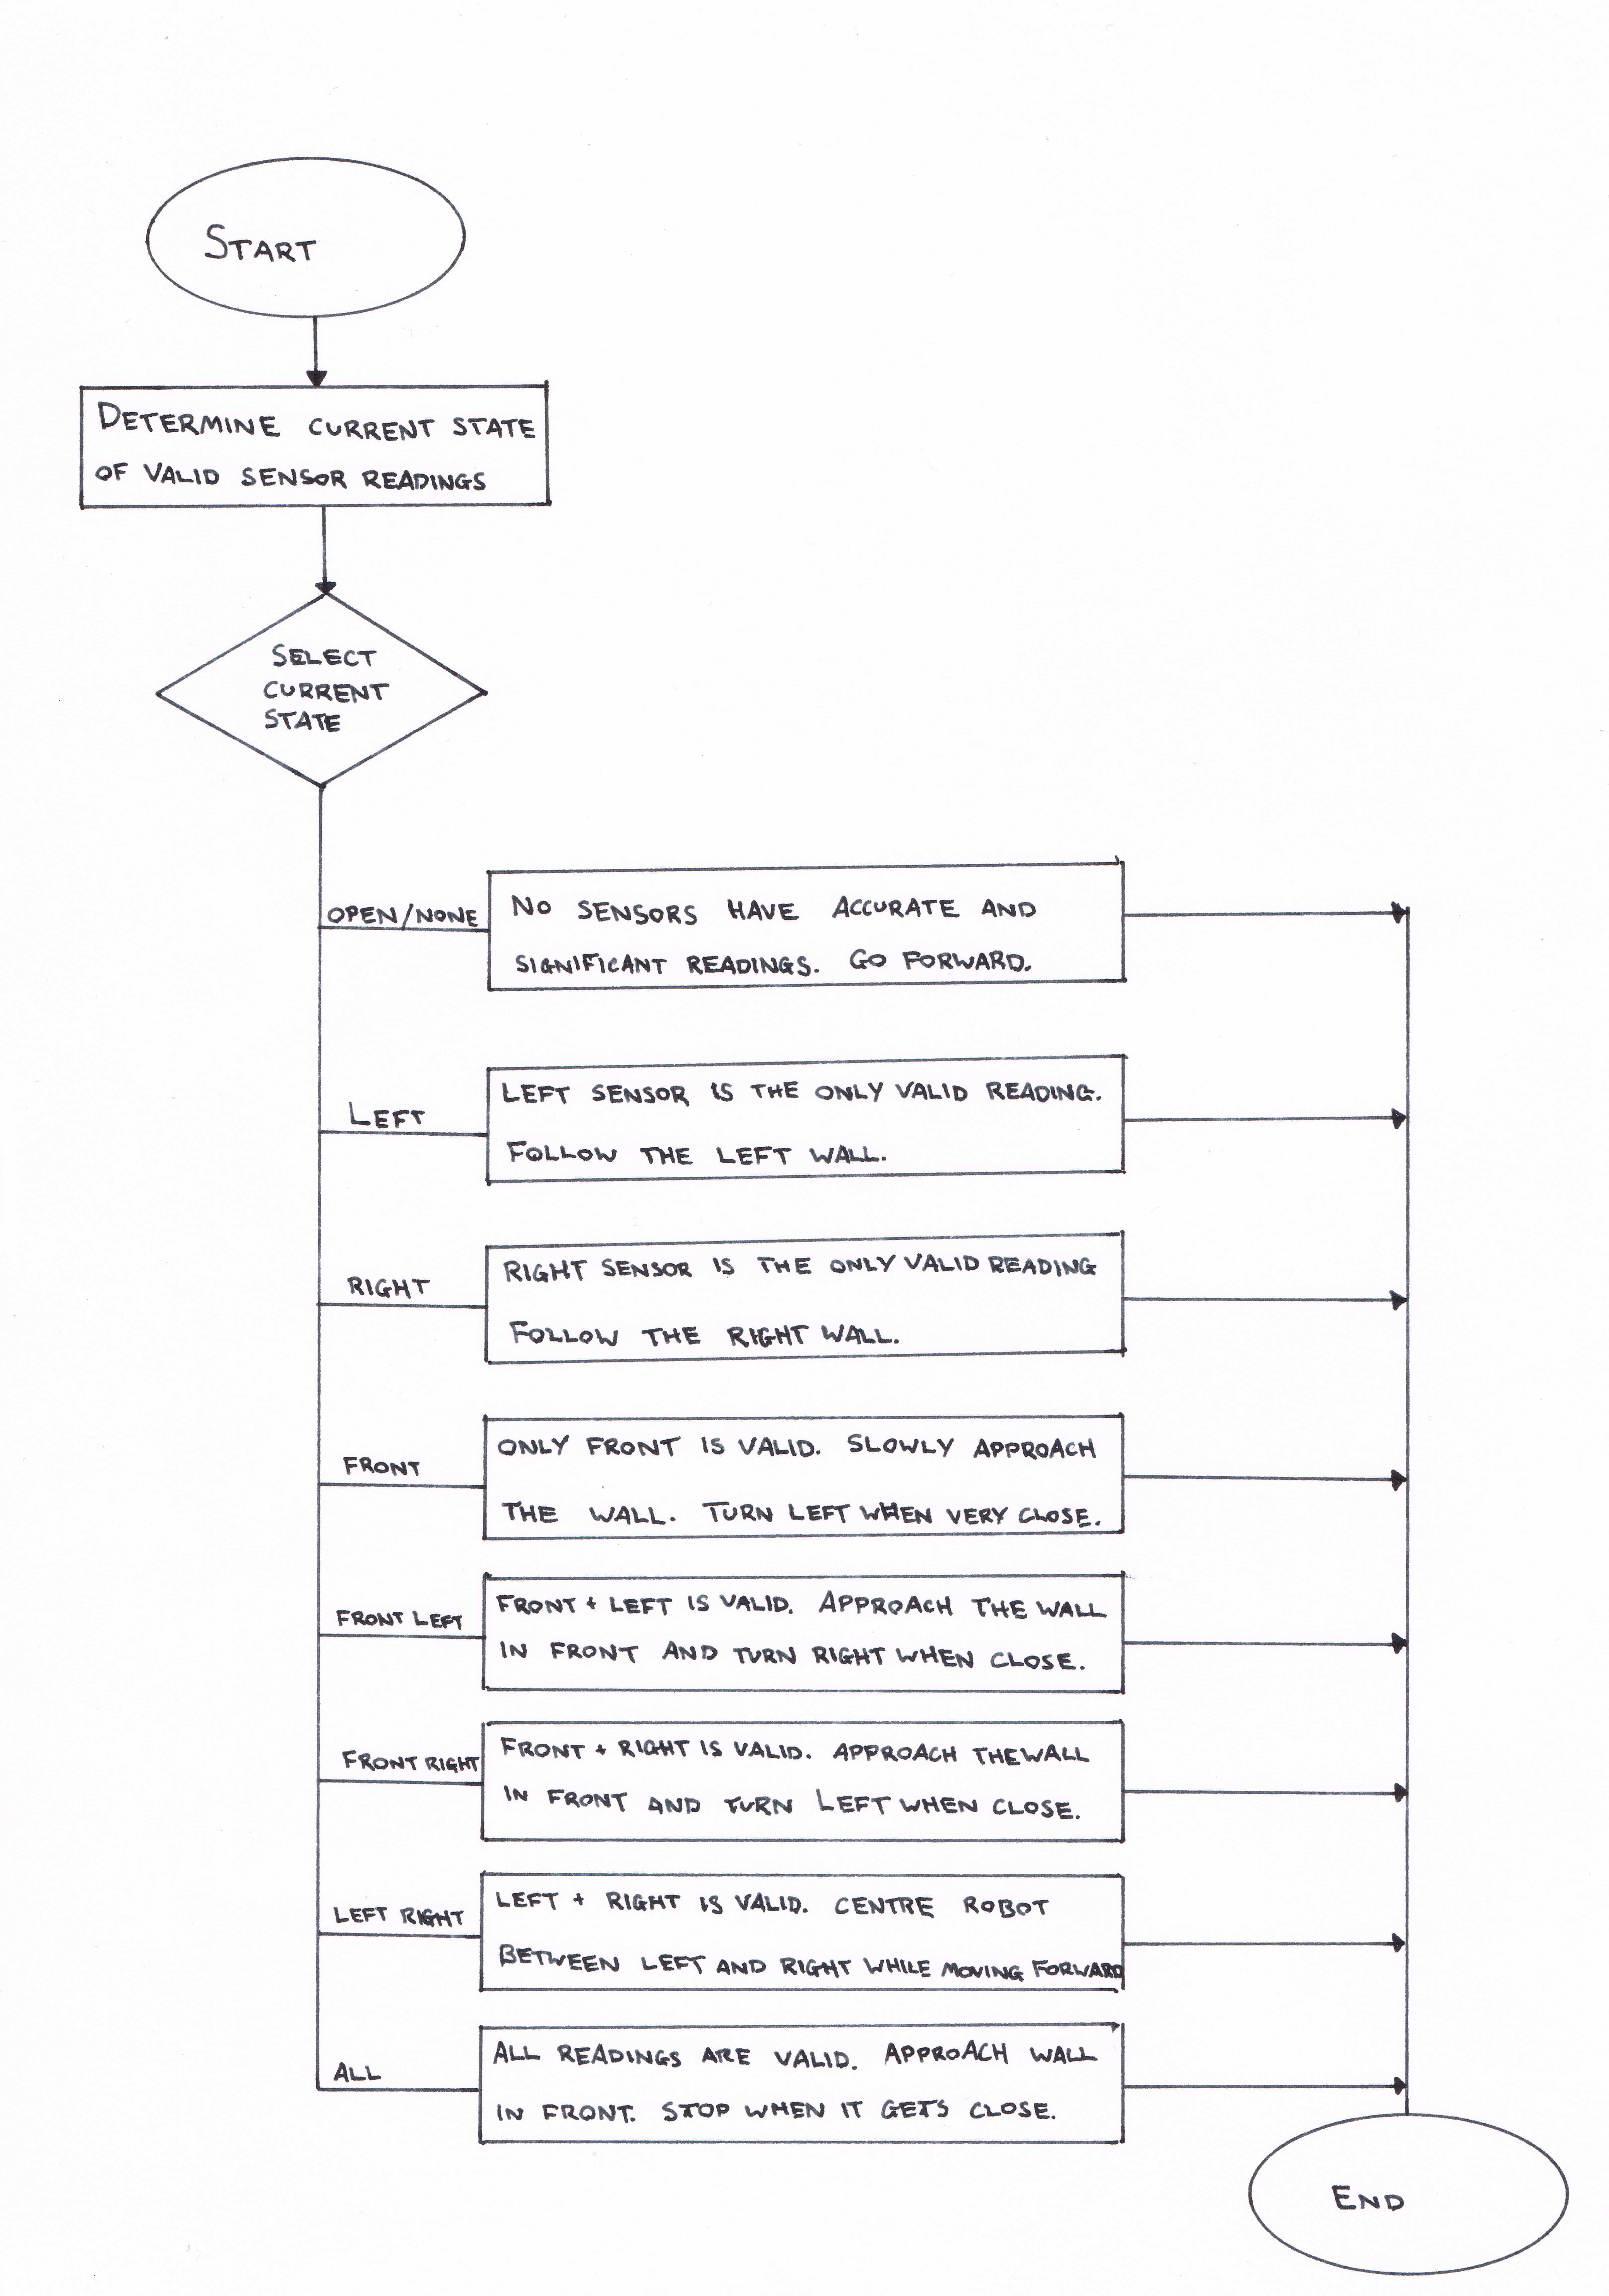 START
DETERMINE CURRENT STATE
OF VALID SENSOR READINGS
SELECT
CURRENT
STATE
OPEN/NONE
NO SENSORS HAVE ACCURATE AND
SIGNIFICANT READINGS. GO FORWARD.
LEFT
LEFT SENSOR IS THE ONLY VALID READING.
FOLLOW THE LEFT WALL.
RIGHT
RIGHT SENSOR IS THE ONLY VALID READING
FOLLOW THE RIGHT WALL.
FRONT
ONLY FRONT IS VALID. SLOWLY APPROACH
THE WALL. TURN LEFT WHEN VERY CLOSE.
FRONT LEFT
FRONT + LEFT IS VALID. APPROACH THE WALL
IN FRONT AND TURN RIGHT WHEN CLOSE.
FRONT RIGHT
FRONT + RIGHT IS VALID. APPROACH THE WALL
IN FRONT AND TURN LEFT WHEN CLOSE.
LEFT RIGHT
LEFT + RIGHT IS VALID. CENTRE ROBOT
BETWEEN LEFT AND RIGHT WHILE MOVING FORWARD
ALL
ALL READINGS ARE VALID. APPROACH WALL
IN FRONT. STOP WHEN IT GETS CLOSE.
END